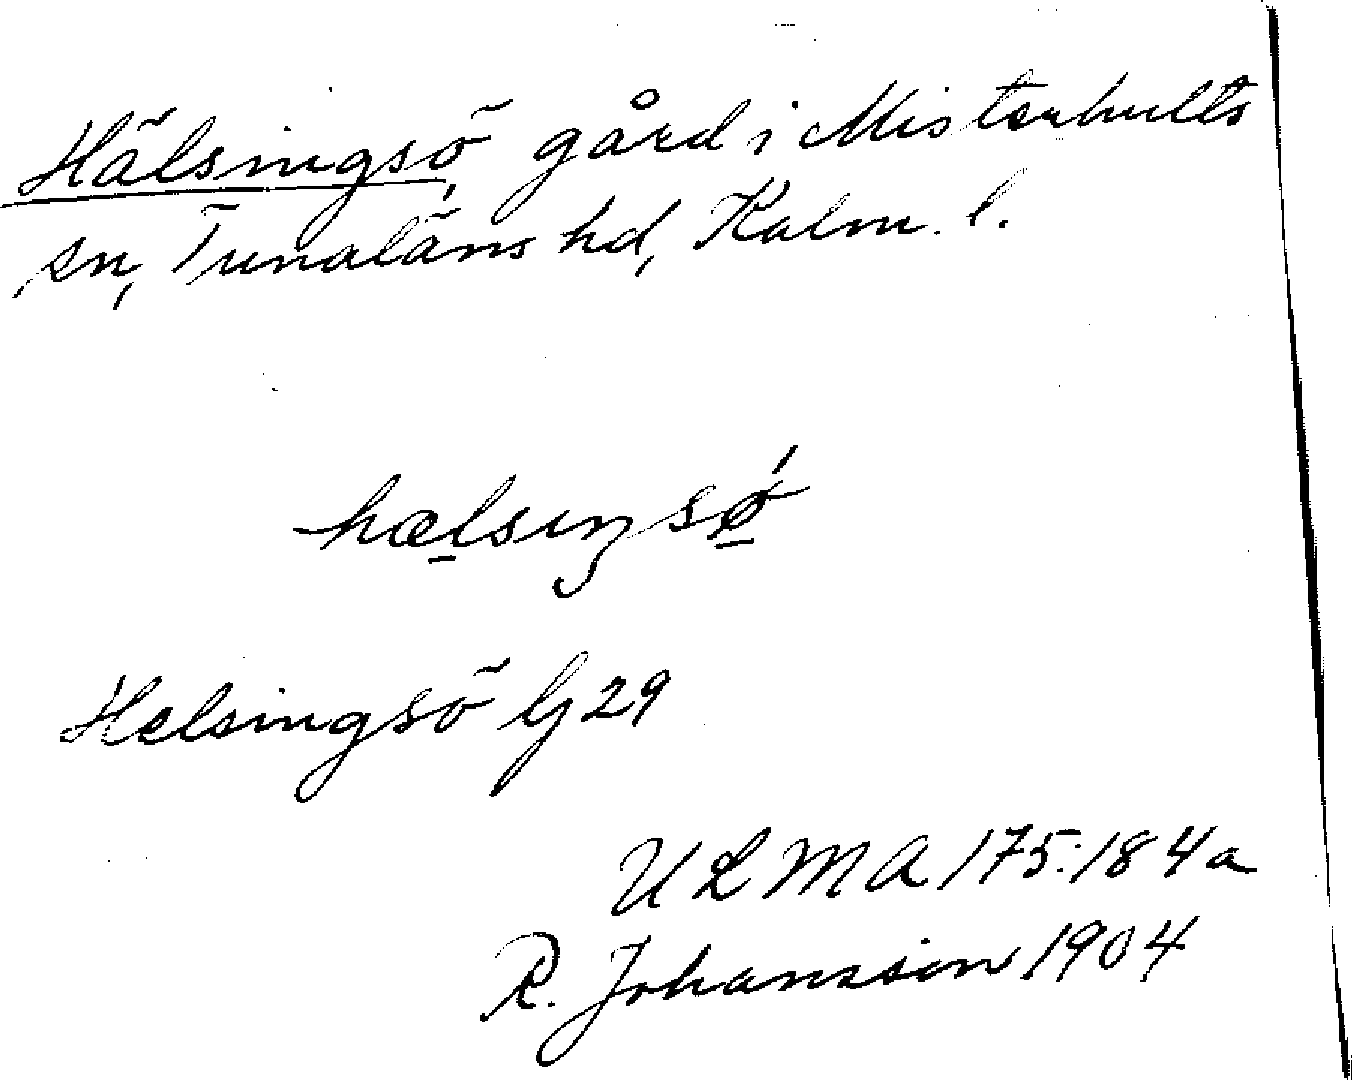 Hälsingsö, gård i Misterhults
sn, Tunaläns hd, Kalm. l.
hælsiŋsǿ
Helsingsö Gj 29
ULMA 175:184a
R. Johansson 1904